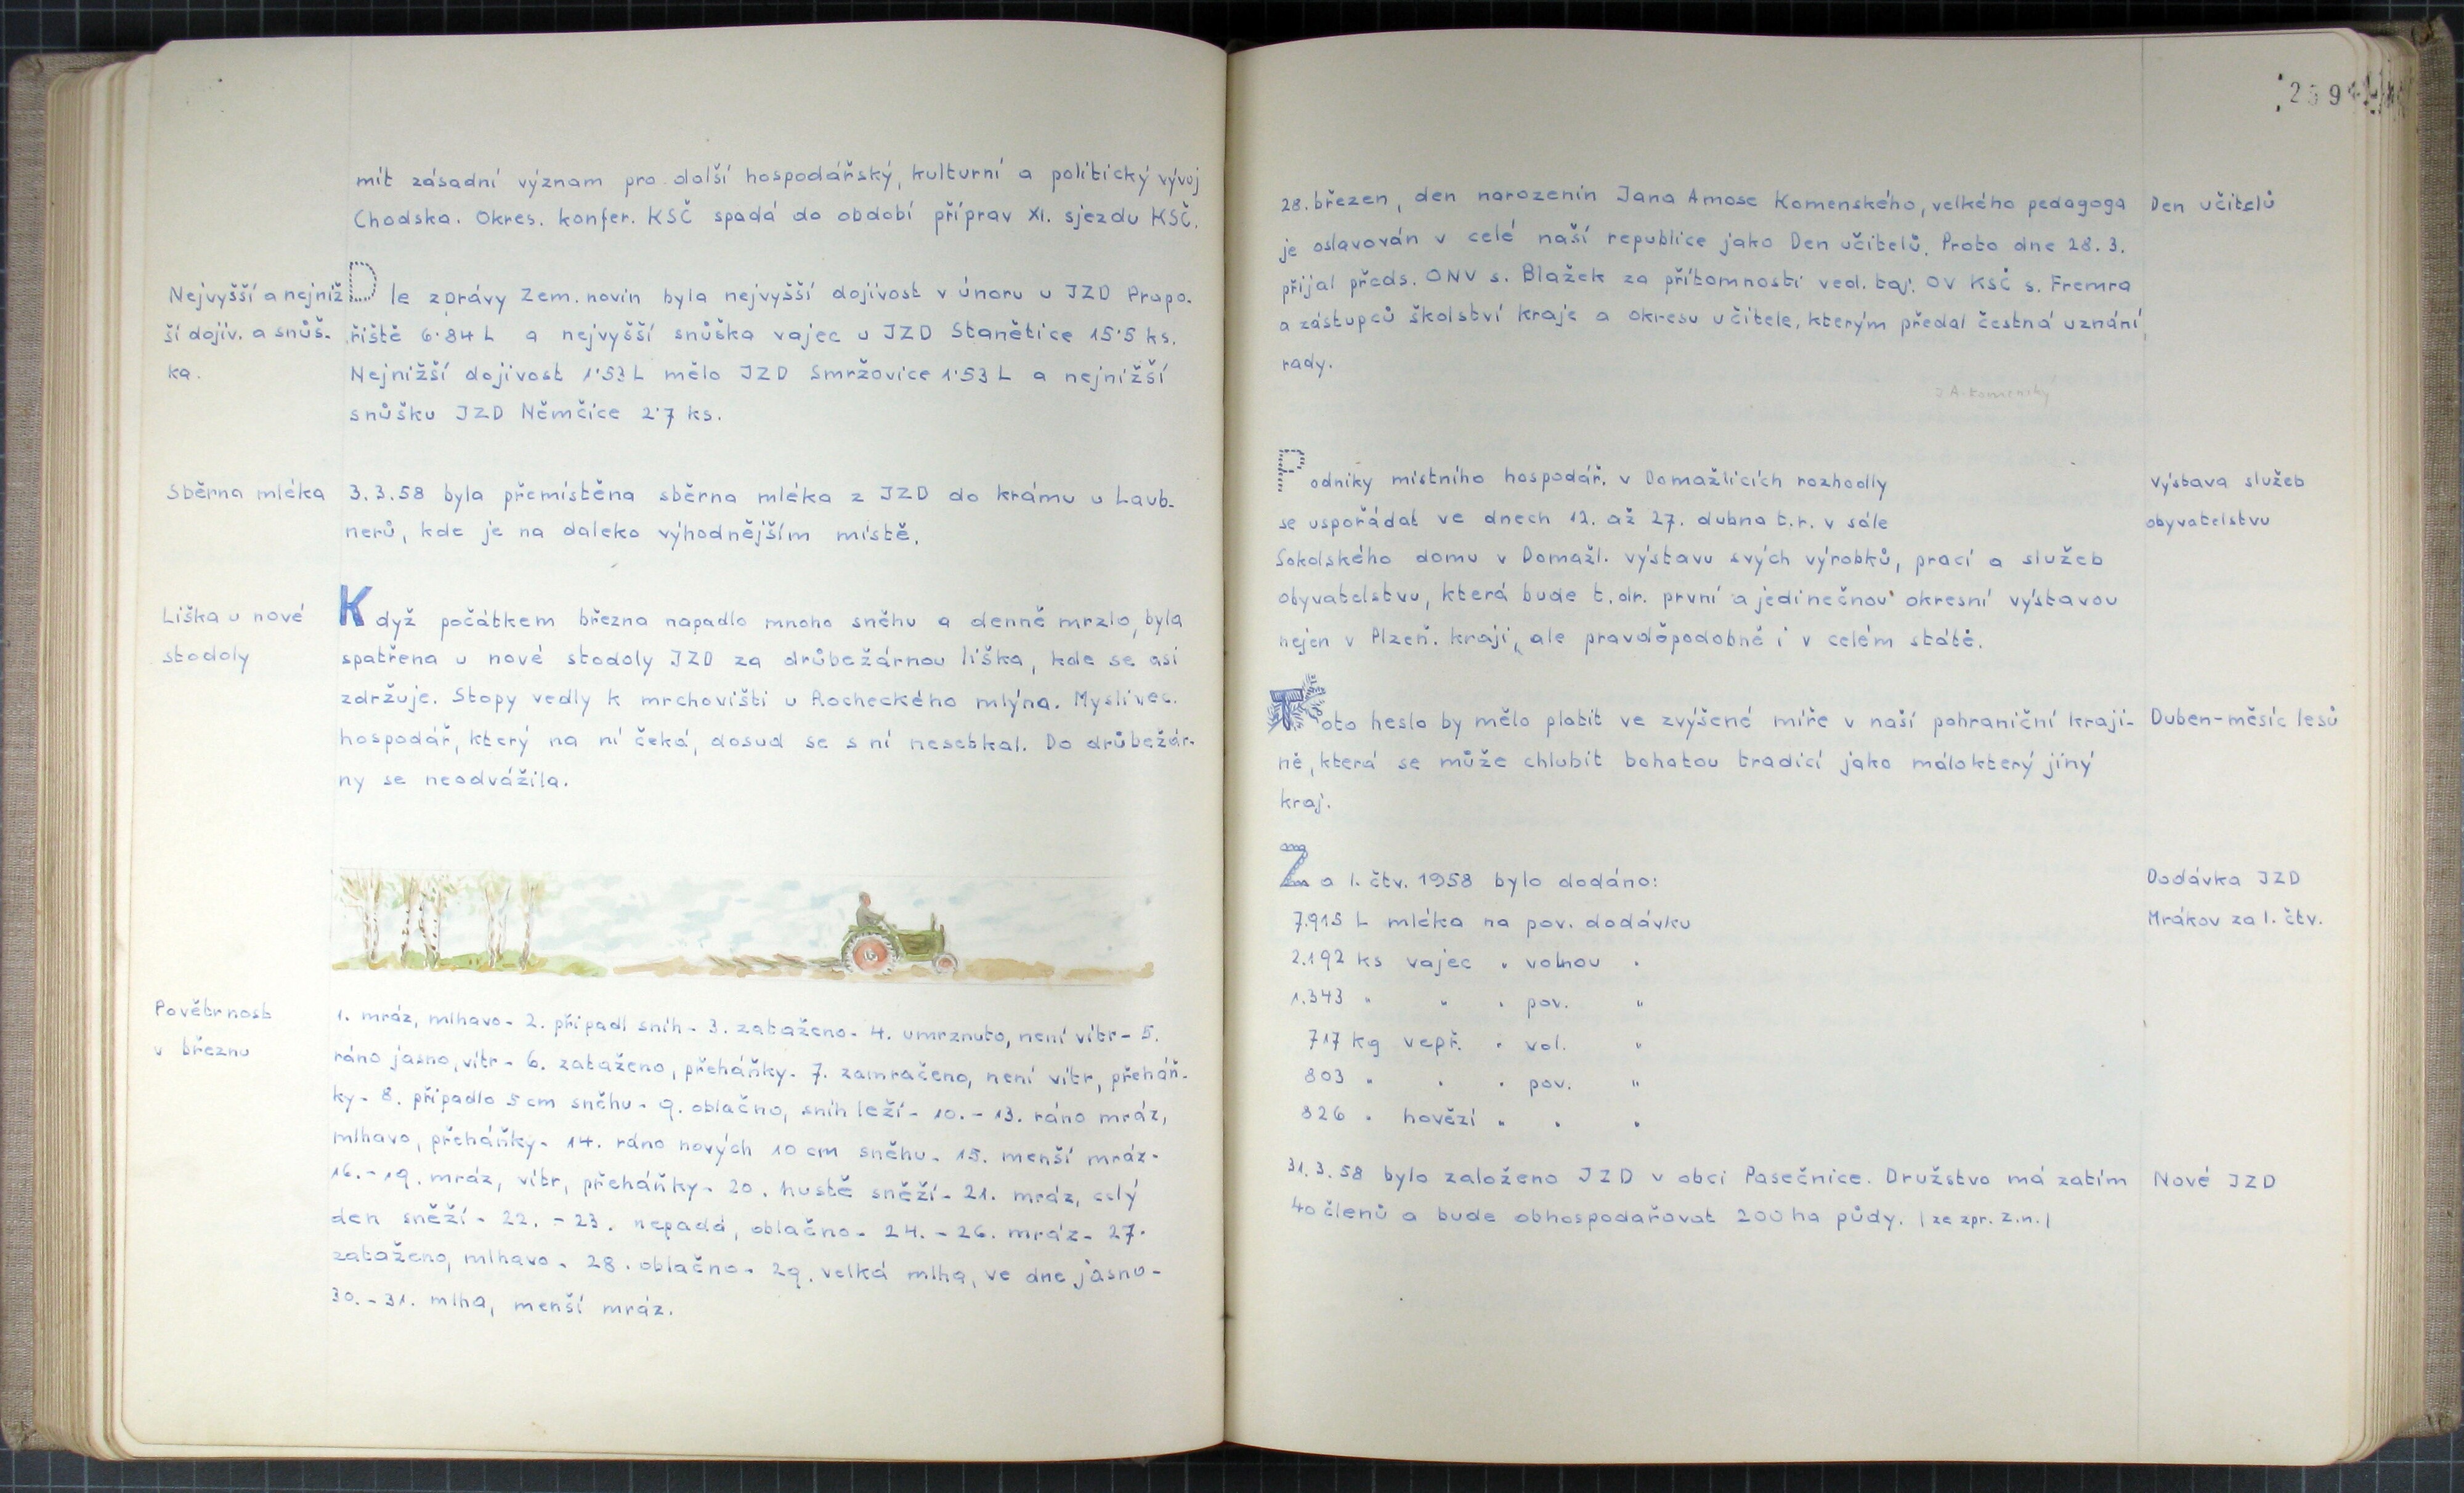 mít zásadní význam pro další hospodářský, kulturní a politický vývoj
Chodska. Okres. konfer. KSČ spadá do období příprav XI. sjezdu KSČ.
Nejvyšší a nejniž
ší dojiv. a snůš-
ka.
Dle zprávy Zem. novin byla nejvyšší dojivost v únoru u JZD Prapo-
řiště 6·84 L a nejvyšší snůška vajec u JZD Stanětice 15·5 ks.
Nejnižší dojivost 1·53 L mělo JZD Smržovice 1·53 L a nejnižší
snůšku JZD Němčice 2·7 ks.
Sběrna mléka
3.3.58 byla přemístěna sběrna mléka z JZD do krámu u Laub-
nerů, kde je na daleko výhodnějším místě.
Liška u nové
stodoly
Když počátkem března napadlo mnoho sněhu a denně mrzlo, byla
spatřena u nové stodoly JZD za drůbežárnou liška, kde se asi
zdržuje. Stopy vedly k mrchovišti u Rocheckého mlýna. Myslivec.
hospodář, který na ní čeká, dosud se s ní nesetkal. Do drůbežár-
ny se neodvážila.
Povětrnost
v březnu
1. mráz, mlhavo - 2. připadl sníh - 3. zataženo - 4. umrznuto, není vítr - 5.
ráno jasno, vítr - 6. zataženo, přeháňky - 7. zamračeno, není vítr, přeháň-
ky - 8. připadlo 5 cm sněhu - 9. oblačno, sníh leží - 10. - 13. ráno mráz,
mlhavo, přeháňky - 14. ráno nových 10 cm sněhu - 15. menší mráz -
16. - 19. mráz, vítr, přeháňky - 20. hustě sněží - 21. mráz, celý
den sněží - 22. - 23. nepadá, oblačno - 24. - 26. mráz - 27.
zataženo, mlhavo - 28. oblačno - 29. velká mlha, ve dne jasno -
30. - 31. mlha, menší mráz.
28. březen, den narozenin Jana Amose Komenského, velkého pedagoga
je oslavován v celé naší republice jako Den učitelů. Proto dne 28. 3.
přijal předs. ONV s. Blažek za přítomnosti ved. taj. OV KSČ s. Fremra
a zástupců školství kraje a okresu učitele, kterým předal čestná uznání
rady.
Den učitelů
J A. Komenský
Podniky místního hospodář. v Domažlicích rozhodly
se uspořádat ve dnech 12. až 27. dubna t.r. v sále
Sokolského domu v Domažl. výstavu svých výrobků, prací a služeb
obyvatelstvu, která bude t. dr. první a jedinečnou okresní výstavou
nejen v Plzeň. kraji, ale pravděpodobně i v celém státě.
Výstava služeb
obyvatelstvu
Toto heslo by mělo platit ve zvýšené míře v naší pohraniční kraji-
ně, která se může chlubit bohatou tradicí jako málokterý jiný
kraj.
Duben - měsíc lesů
Za 1. čtv. 1958 bylo dodáno:
7.915 L mléka na pov. dodávku
2.192 ks vajec " volnou "
1.343 " " " pov. "
717 kg vepř. " vol. "
803 " " " pov. "
826 " hovězí " " "
Dodávka JZD
Mrákov za 1. čtv.
31. 3. 58 bylo založeno JZD v obci Pasečnice. Družstvo má zatím
40 členů a bude obhospodařovat 200 ha půdy. / ze zpr. Z.n. /
Nové JZD